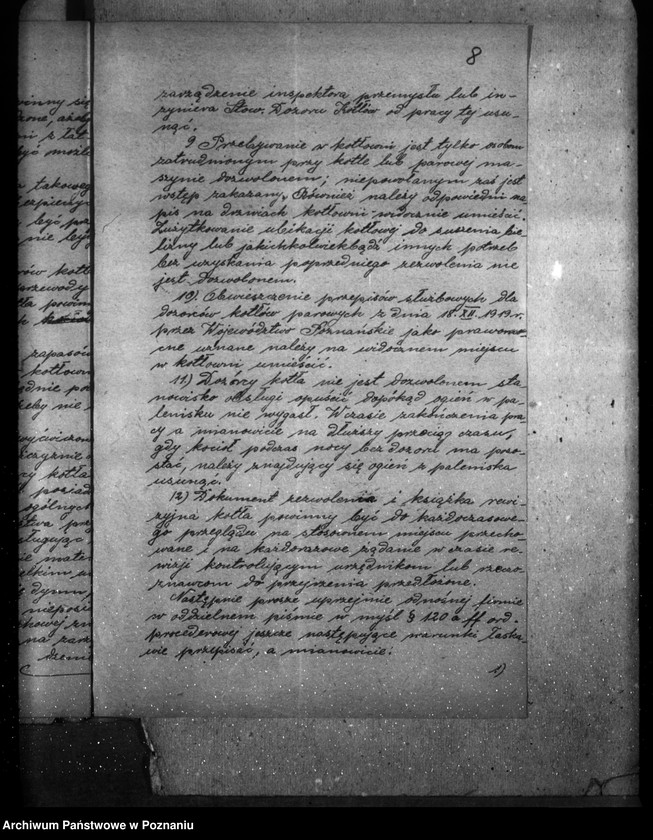 8
zarządzenie inspektora przemysłu lub in-
żyniera Stow. Dozoru Kotłów od pracy tej usu-
nąć.
9 Przebywanie w kotłowni jest tylko osobom
zatrudnionym przy kotle lub parowej ma-
szynie dozwolonem; niepowołanym zaś jest
wstęp zakazany. Również należy odpowiedni na-
pis na drzwiach kotłowni widocznie umieścić.
Zużytkowanie ubikacji kotłowej do suszenia bie-
lizny lub jakichkolwiekbądź innych potrzeb
bez uzyskania poprzedniego zezwolenia nie
jest dozwolonem.
10). Obwieszczenie przepisów służbowych dla
dozorców kotłów parowych z dnia 18.XII.1919 r.
przez Województwo Poznańskie jako prawomo-
cne uznane należy na widocznem miejscu
w kotłowni umieścić.
11.) Dozorcy kotła nie jest dozwolonem sta-
nowisko obsługi opuścić dopókąd ogień w pa-
lenisku nie wygasł. W czasie zakończenia pra-
cy a mianowicie na dłuższy przeciąg czasu,
gdy kocioł podczas nocy bez dozoru ma pozo-
stać, należy znajdujący się ogień z paleniska
usunąć.
12) Dokument zezwolenia i książka rewi-
zyjna kotła powinny być do każdoczasowe-
go przeglądu na stosownem miejscu przecho-
wane i na każdorazowe żądanie w czasie re-
wizji kontrolującym urzędnikom lub rzeczo-
znawcom do przejrzenia przedłożone.
Następnie proszę uprzejmie odnośnej firmie
w oddzielnem piśmie w myśl § 120 a ff ord.
procederowej jeszcze następujące warunki łaska-
wie przepisać, a mianowicie:
1)
Archiwum Państwowe w Poznaniu